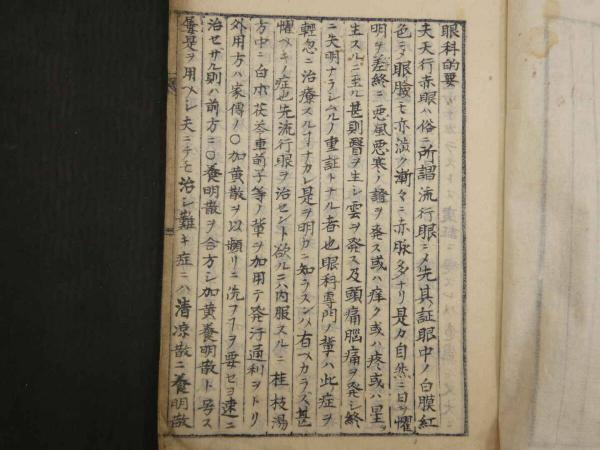 眼科的要
夫天行赤眼ハ俗ニ所謂流行眼ニメ先其証眼中ノ白膜紅
色ニ〆眼瞼モ亦渋ク漸々ニ赤脉多ナリ是カ自然ニ日ヲ懼
明ヲ羞終ニ悪風悪寒ノ證ヲ発ス或ハ痒ク或ハ疼或ハ星ヲ
生スルニ至ル甚則翳ヲ生シ雲ヲ発ス及頭痛脳痛ヲ発シ終
ニ失明ナラシムルノ重証トナル者也眼科専門ノ輩ハ此症ヲ
軽忽ニ治療スルヿナカレ是ヲ明カニ知ラスンハ有ヘカラス甚
懼ヘキノ症也先流行眼ヲ治セント欲ルニハ内服スルニ桂枝湯
方中ニ白朮茯苓車前子等ノ輩ヲ加用テ発汗通利ヲトリ
外用方ハ家傳ノ○加黄散ヲ以頻リニ洗フヿヲ要セヨ速ニ
治セサル則ハ前方ニ○養明散ヲ合方シ加黄養明散ト号ス
是ヲ用ヘシ夫ニテモ治シ難キ症ニハ清凉散ニ養明散